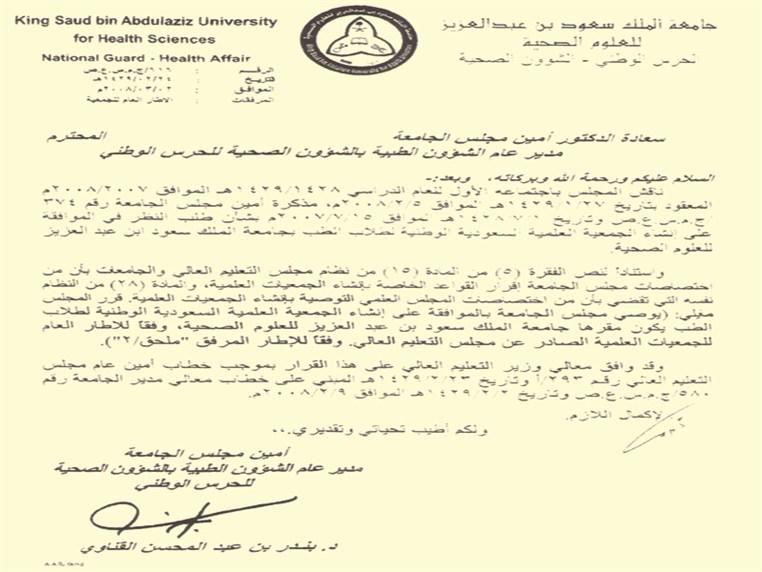 King Saud bin Abdulaziz University
for Health Sciences
National Guard - Health Affair
جامعة الملك سعود بن عبدالعزيز
للعلوم الصحية
الحرس الوطني - الشؤون الصحية
الرقم : ١١٦/ج.م.س.ع.ص
التاريخ : ١٤٢٩/٠٢/٢٤هـ
الموافق : ٢٠٠٨/٠٣/٠٢م
المرفقات : الإطار العام للجمعية
سعادة الدكتور أمين مجلس الجامعة المحترم
مدير عام الشؤون الطبية بالشؤون الصحية للحرس الوطني
السلام عليكم ورحمة الله وبركاته، وبعد:-
ناقش المجلس باجتماعه الأول للعام الدراسي ١٤٢٩/١٤٢٨هـ الموافق ٢٠٠٨/٢٠٠٧م
المعقود بتاريخ ١٤٢٩/١/٢٧هـ الموافق ٢٠٠٨/٢/٥م، مذكرة أمين مجلس الجامعة رقم ٣٧٤
/ج.م.س.ع.ص وتاريخ ١٤٢٨/٧/١هـ الموافق ٢٠٠٧/٧/١٥م بشأن طلب النظر في الموافقة
على إنشاء الجمعية العلمية السعودية الوطنية لطلاب الطب بجامعة الملك سعود ابن عبد العزيز
للعلوم الصحية.
واستناداً لنص الفقرة (٥) من المادة (١٥) من نظام مجلس التعليم العالي والجامعات بأن من
اختصاصات مجلس الجامعة إقرار القواعد الخاصة بإنشاء الجمعيات العلمية، والمادة (٢٨) من النظام
نفسه التي تقضي بأن من اختصاصات المجلس العلمي التوصية بإنشاء الجمعيات العلمية. قرر المجلس
مايلي: (يوصي مجلس الجامعة بالموافقة على إنشاء الجمعية العلمية السعودية الوطنية لطلاب
الطب يكون مقرها جامعة الملك سعود بن عبد العزيز للعلوم الصحية، وفقاً للإطار العام
للجمعيات العلمية الصادر عن مجلس التعليم العالي. وفقاً للإطار المرفق "ملحق/٢").
وقد وافق معالي وزير التعليم العالي على هذا القرار بموجب خطاب أمين عام مجلس
التعليم العالي رقم ٢٩٣/أ وتاريخ ١٤٢٩/٢/٢٣هـ المبني على خطاب معالي مدير الجامعة رقم
٥٨٠/ج.م.س.ع.ص وتاريخ ١٤٢٩/٢/٢هـ الموافق ٢٠٠٨/٢/٩م.
لإكمال اللازم.
ولكم أطيب تحياتي وتقديري...
أمين مجلس الجامعة
مدير عام الشؤون الطبية بالشؤون الصحية
للحرس الوطني
د. بندر بن عبد المحسن القناوي